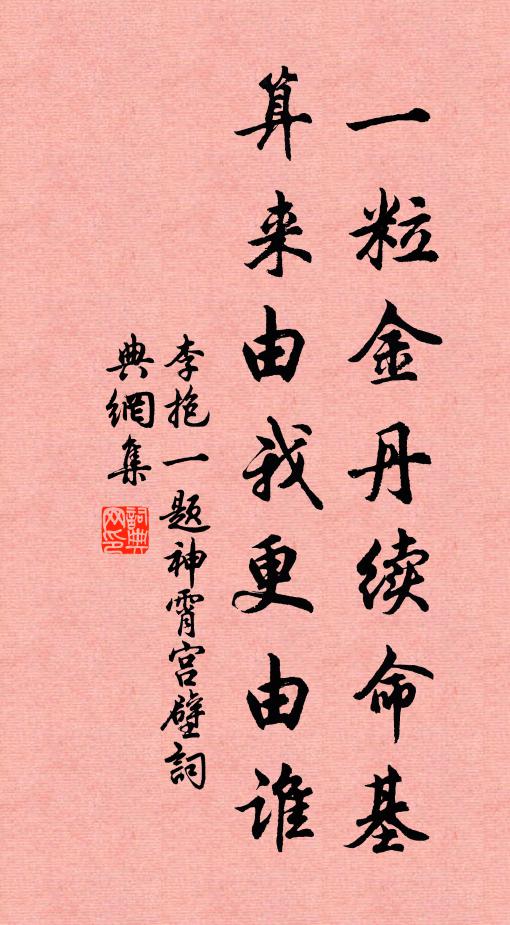 一粒金丹续命基
算来由我更由谁
李抱一题神霄宫壁词
典網集
詞典网印